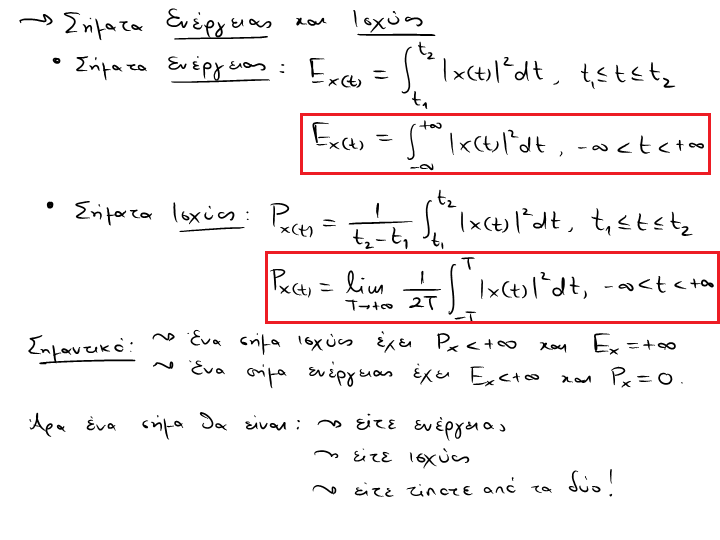 ⤳ Σήματα Ενέργειας και Ισχύος
• Σήματα ενέργειας: E_x(t) = ∫_{t₁}^{t₂} |x(t)|² dt, t₁ ≤ t ≤ t₂
E_x(t) = ∫_{-∞}^{+∞} |x(t)|² dt, -∞ < t < +∞
• Σήματα Ισχύος: P_x(t) = 1/(t₂-t₁) ∫_{t₁}^{t₂} |x(t)|² dt, t₁ ≤ t ≤ t₂
P_x(t) = lim_{T→+∞} 1/2T ∫_{-T}^{T} |x(t)|² dt, -∞ < t < +∞
Σημαντικό: ⤳ ένα σήμα ισχύος έχει P_x < +∞ και E_x = +∞
⤳ ένα σήμα ενέργειας έχει E_x < +∞ και P_x = 0.
Άρα ένα σήμα θα είναι: ⤳ είτε ενέργειας
⤳ είτε ισχύος
⤳ είτε τίποτε από τα δύο!